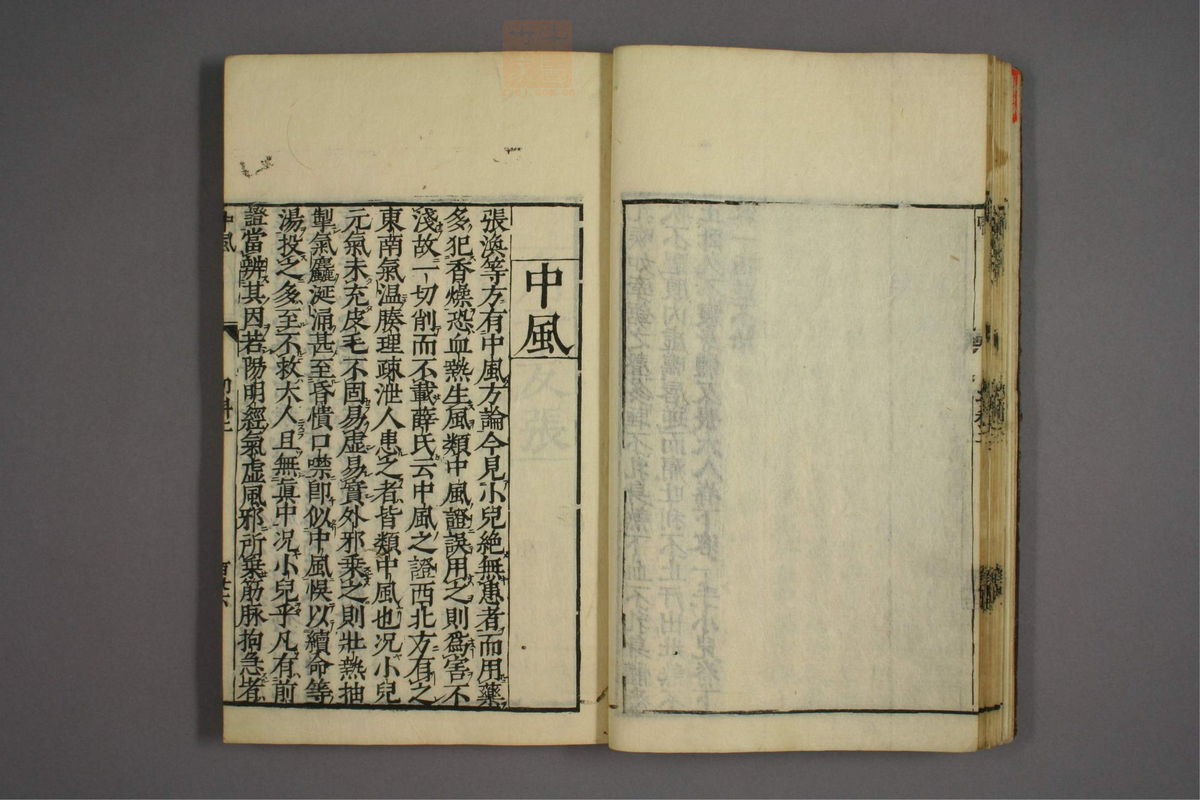 中風
張渙等方有中風方論今見小兒絶無患者而用藥
多犯香燥恐血熱生風類中風證誤用之則爲害不
淺故一切削而不載薛氏云中風之證西北方有之
東南氣温腠理疎泄人患之者皆類中風也况小兒
元氣未充皮毛不固易虛易實外邪乗之則壯熱抽
掣氣麤涎涌甚至昏憒口噤即似中風悞以續命等
湯投之多至不救大人且無眞中况小兒乎凡有前
證當辨其因若陽明經氣虛風邪所乗筋脉拘急者
中風